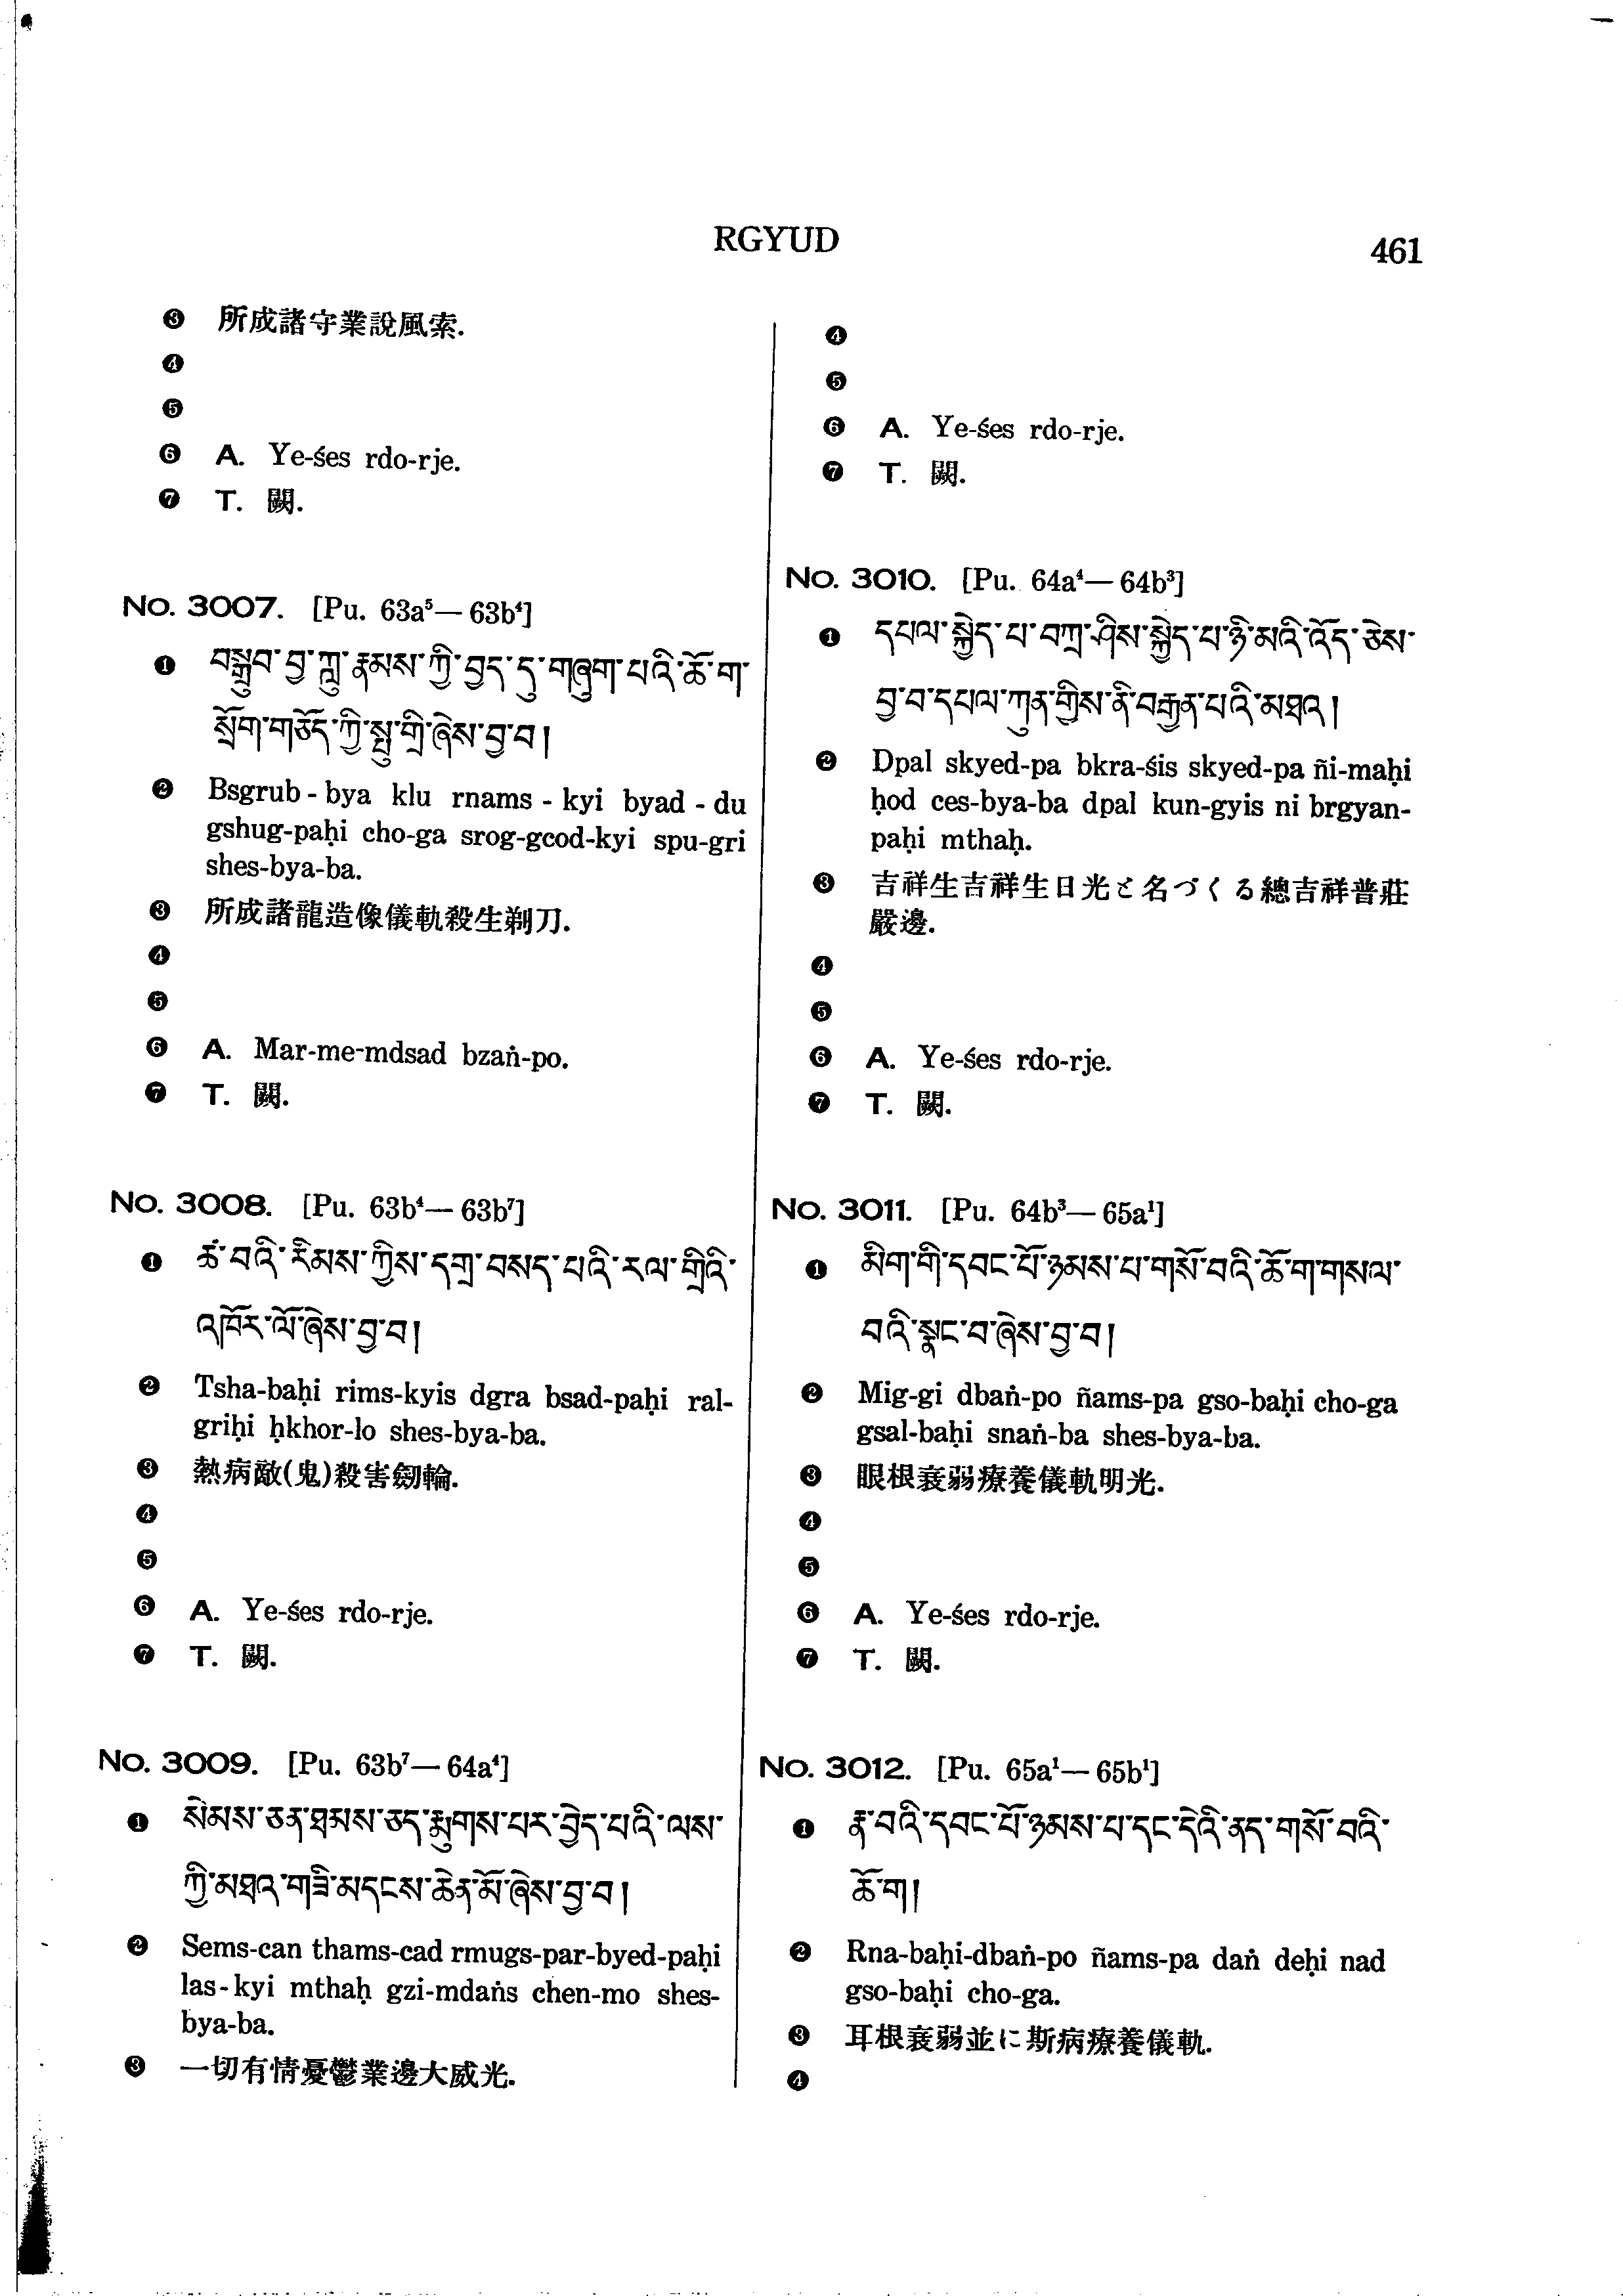 RGYUD
461
❸ 所成諸守業說風索.
❹
❺
❻ A. Ye-śes rdo-rje.
❼ T. 闕.
No. 3007. [Pu. 63a⁵— 63b⁴]
❶ བསྒྲུབ་བྱ་ཀླུ་རྣམས་ཀྱི་བྱད་དུ་གཞུག་པའི་ཆོ་ག་
སྲོག་གཅོད་ཀྱི་སྤུ་གྲི་ཞེས་བྱ་བ།
❷ Bsgrub-bya klu rnams-kyi byad-du
gshug-paḥi cho-ga srog-gcod-kyi spu-gri
shes-bya-ba.
❸ 所成諸龍造像儀軌殺生剃刀.
❹
❺
❻ A. Mar-me-mdsad bzaṅ-po.
❼ T. 闕.
No. 3008. [Pu. 63b⁴— 63b⁷]
❶ ཚ་བའི་རིམས་ཀྱིས་དགྲ་བསད་པའི་རལ་གྲིའི་
འཁོར་ལོ་ཞེས་བྱ་བ།
❷ Tsha-baḥi rims-kyis dgra bsad-paḥi ral-
griḥi ḥkhor-lo shes-bya-ba.
❸ 熱病敵(鬼)殺害劒輪.
❹
❺
❻ A. Ye-śes rdo-rje.
❼ T. 闕.
No. 3009. [Pu. 63b⁷— 64a⁴]
❶ སེམས་ཅན་ཐམས་ཅད་རྨུགས་པར་བྱེད་པའི་ལས་
ཀྱི་མཐའ་གཟི་མདངས་ཆེན་མོ་ཞེས་བྱ་བ།
❷ Sems-can thams-cad rmugs-par-byed-paḥi
las-kyi mthaḥ gzi-mdaṅs chen-mo shes-
bya-ba.
❸ 一切有情憂鬱業邊大威光.
❹
❺
❻ A. Ye-śes rdo-rje.
❼ T. 闕.
No. 3010. [Pu. 64a⁴— 64b³]
❶ དཔལ་སྐྱེད་པ་བཀྲ་ཤིས་སྐྱེད་པ་ཉི་མའི་འོད་ཅེས་
བྱ་བ་དཔལ་ཀུན་གྱིས་ནི་བརྒྱན་པའི་མཐའ།
❷ Dpal skyed-pa bkra-śis skyed-pa ñi-maḥi
ḥod ces-bya-ba dpal kun-gyis ni brgyan-
paḥi mthaḥ.
❸ 吉祥生吉祥生日光と名づくる總吉祥普莊
嚴邊.
❹
❺
❻ A. Ye-śes rdo-rje.
❼ T. 闕.
No. 3011. [Pu. 64b³— 65a¹]
❶ མིག་གི་དབང་པོ་ཉམས་པ་གསོ་བའི་ཆོ་ག་གསལ་
བའི་སྣང་བ་ཞེས་བྱ་བ།
❷ Mig-gi dbaṅ-po ñams-pa gso-baḥi cho-ga
gsal-baḥi snaṅ-ba shes-bya-ba.
❸ 眼根衰弱療養儀軌明光.
❹
❺
❻ A. Ye-śes rdo-rje.
❼ T. 闕.
No. 3012. [Pu. 65a¹— 65b¹]
❶ རྣ་བའི་དབང་པོ་ཉམས་པ་དང་དེའི་ནད་གསོ་བའི་
ཆོ་ག།
❷ Rna-baḥi-dbaṅ-po ñams-pa daṅ deḥi nad
gso-baḥi cho-ga.
❸ 耳根衰弱並に斯病療養儀軌.
❹